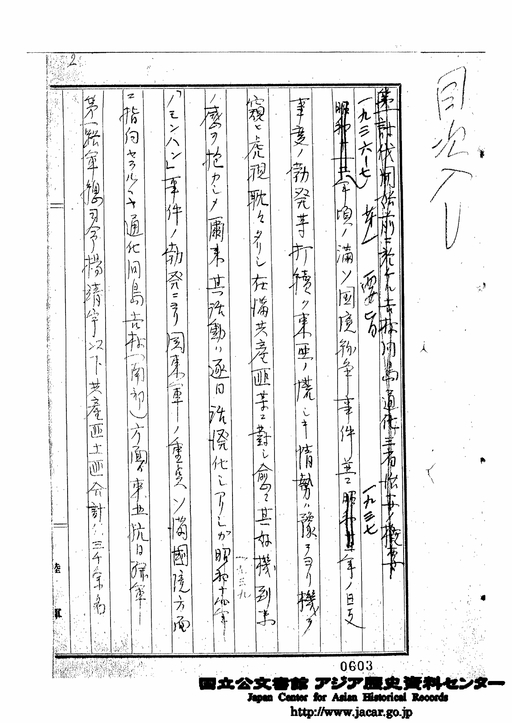 目次入レ
第一討伐開始前ニ於ケル吉林間島通化三省治安ノ概要
一九三六-七
第一 要旨
一九三七
昭和十一、二年頃ノ満ソ国境紛争事件並ニ昭和十二年ノ日支
事変ノ勃発等打続ク東亜ノ慌シキ情勢ハ豫テヨリ機ヲ
窺ヒ虎視眈々タリシ在満共産匪等ニ対シ愈々其好機到来
ノ感ヲ抱カシメ爾来其活動ハ逐日活溌化シアリシカ昭和十四年
一九三九
「ノモンハン」事件ノ勃発ニヨリ関東軍ノ重点ソ満国境方面
ニ指向セラルルヤ通化間島吉林(南部)方面東北抗日聯軍
第一路軍総司令楊靖宇以下共産匪土匪合計三千余名
2
陸軍
0603
国立公文書館 アジア歴史資料センター
Japan Center for Asian Historical Records
http://www.jacar.go.jp